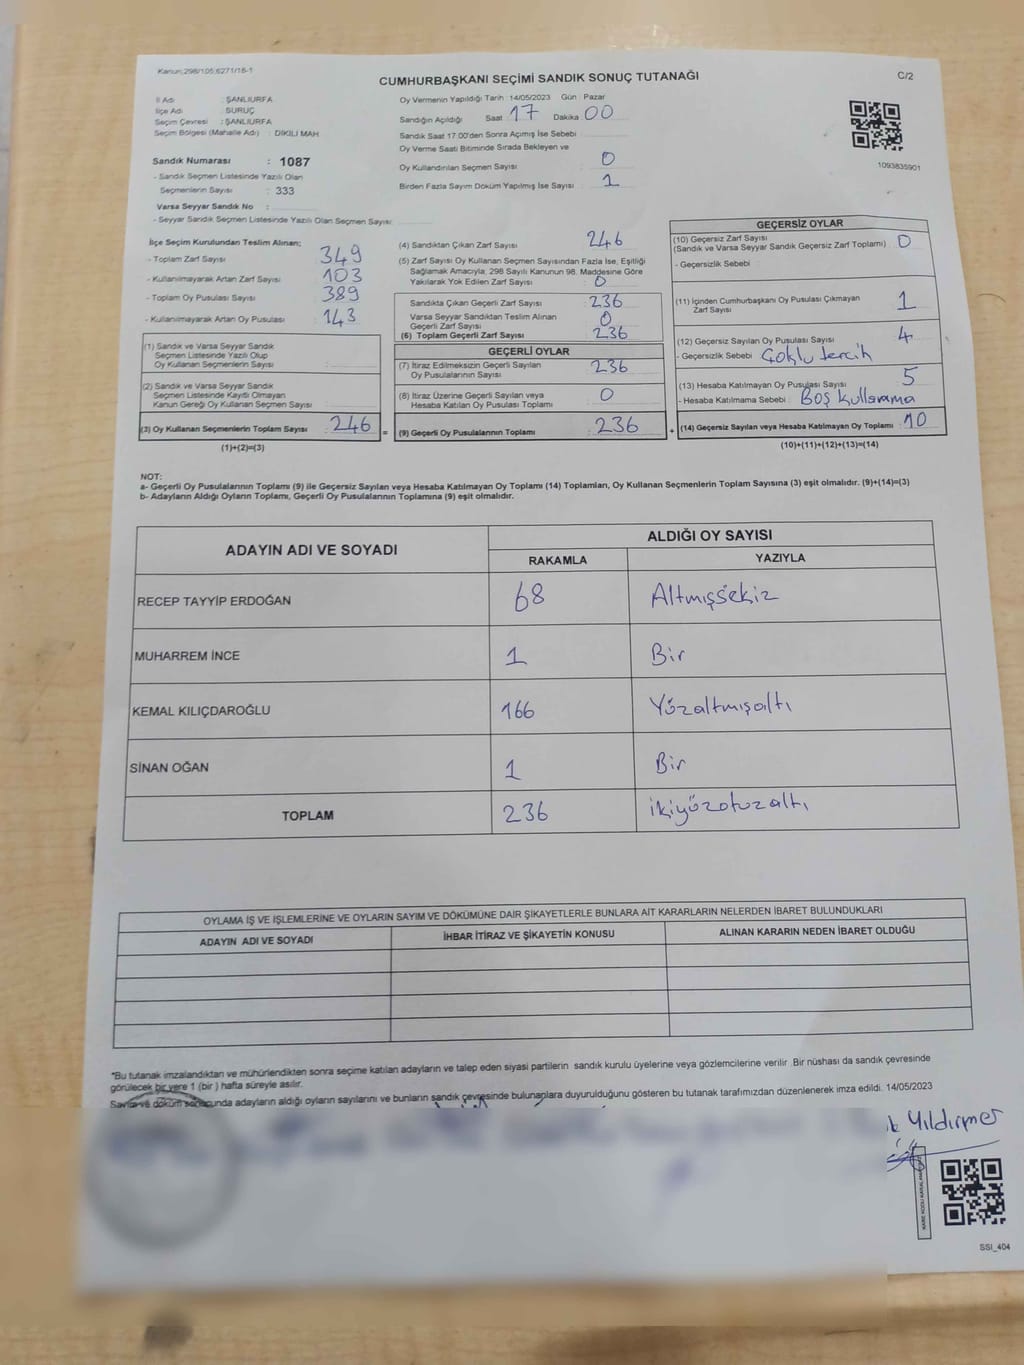 Kanun:298/105;6271/16-1
CUMHURBAŞKANI SEÇİMİ SANDIK SONUÇ TUTANAĞI
C/2
İl Adı : ŞANLIURFA
İlçe Adı : SURUÇ
Seçim Çevresi : ŞANLIURFA
Seçim Bölgesi (Mahalle Adı) : DİKİLİ MAH
Sandık Numarası : 1087
- Sandık Seçmen Listesinde Yazılı Olan
Seçmenlerin Sayısı : 333
Varsa Seyyar Sandık No :
- Seyyar Sandık Seçmen Listesinde Yazılı Olan Seçmen Sayısı:
Oy Vermenin Yapıldığı Tarih : 14/05/2023 Gün : Pazar
Sandığın Açıldığı Saat 17 Dakika 00
Sandık Saat 17:00'den Sonra Açımış İse Sebebi
Oy Verme Saati Bitiminde Sırada Bekleyen ve
Oy Kullandırılan Seçmen Sayısı : 0
Birden Fazla Sayım Döküm Yapılmış İse Sayısı : 1
1093835901
İlçe Seçim Kurulundan Teslim Alınan;
- Toplam Zarf Sayısı : 349
- Kullanılmayarak Artan Zarf Sayısı : 103
- Toplam Oy Pusulası Sayısı : 389
- Kullanılmayarak Artan Oy Pusulası : 143
(1) Sandık ve Varsa Seyyar Sandık
Seçmen Listesinde Yazılı Olup
Oy Kullanan Seçmen Sayısı :
(2) Sandık ve Varsa Seyyar Sandık
Seçmen Listesinde Kayıtlı Olmayan
Kanun Gereği Oy Kullanan Seçmen Sayısı :
(3) Oy Kullanan Seçmenlerin Toplam Sayısı : 246 =
(1)+(2)=(3)
(4) Sandıktan Çıkan Zarf Sayısı : 246
(5) Zarf Sayısı Oy Kullanan Seçmen Sayısından Fazla İse, Eşitliği
Sağlamak Amacıyla, 298 Sayılı Kanunun 98. Maddesine Göre
Yakılarak Yok Edilen Zarf Sayısı : 0
Sandıkta Çıkan Geçerli Zarf Sayısı : 236
Varsa Seyyar Sandıktan Teslim Alınan
Geçerli Zarf Sayısı : 0
(6) Toplam Geçerli Zarf Sayısı : 236
GEÇERLİ OYLAR
(7) İtiraz Edilmeksizin Geçerli Sayılan
Oy Pusulalarının Sayısı : 236
(8) İtiraz Üzerine Geçerli Sayılan veya
Hesaba Katılan Oy Pusulası Toplamı : 0
(9) Geçerli Oy Pusulalarının Toplamı : 236 +
GEÇERSİZ OYLAR
(10) Geçersiz Zarf Sayısı
(Sandık ve Varsa Seyyar Sandık Geçersiz Zarf Toplamı) : 0
- Geçersizlik Sebebi :
(11) İçinden Cumhurbaşkanı Oy Pusulası Çıkmayan
Zarf Sayısı : 1
(12) Geçersiz Sayılan Oy Pusulası Sayısı : 4
- Geçersizlik Sebebi : Çoklu tercih
(13) Hesaba Katılmayan Oy Pusulası Sayısı : 5
- Hesaba Katılmama Sebebi : Boş kullanma
(14) Geçersiz Sayılan veya Hesaba Katılmayan Oy Toplamı : 10
(10)+(11)+(12)+(13)=(14)
NOT:
a- Geçerli Oy Pusulalarının Toplamı (9) ile Geçersiz Sayılan veya Hesaba Katılmayan Oy Toplamı (14) Toplamları, Oy Kullanan Seçmenlerin Toplam Sayısına (3) eşit olmalıdır. (9)+(14)=(3)
b- Adayların Aldığı Oyların Toplamı, Geçerli Oy Pusulalarının Toplamına (9) eşit olmalıdır.
ADAYIN ADI VE SOYADI
ALDIĞI OY SAYISI
RAKAMLA YAZIYLA
RECEP TAYYİP ERDOĞAN 68 Altmışsekiz
MUHARREM İNCE 1 Bir
KEMAL KILIÇDAROĞLU 166 Yüzaltmışaltı
SİNAN OĞAN 1 Bir
TOPLAM 236 ikiyüzotuzaltı
OYLAMA İŞ VE İŞLEMLERİNE VE OYLARIN SAYIM VE DÖKÜMÜNE DAİR ŞİKAYETLERLE BUNLARA AİT KARARLARIN NELERDEN İBARET BULUNDUKLARI
ADAYIN ADI VE SOYADI İHBAR İTİRAZ VE ŞİKAYETİN KONUSU ALINAN KARARIN NEDEN İBARET OLDUĞU
*Bu tutanak imzalandıktan ve mühürlendikten sonra seçime katılan adayların ve talep eden siyasi partilerin sandık kurulu üyelerine veya gözlemcilerine verilir .Bir nüshası da sandık çevresinde
görülecek bir yere 1 (bir ) hafta süreyle asılır.
Sayım ve döküm sonucunda adayların aldığı oyların sayılarını ve bunların sandık çevresinde bulunanlara duyurulduğunu gösteren bu tutanak tarafımızdan düzenlenerek imza edildi. 14/05/2023
Yıldırmer
SSI_404